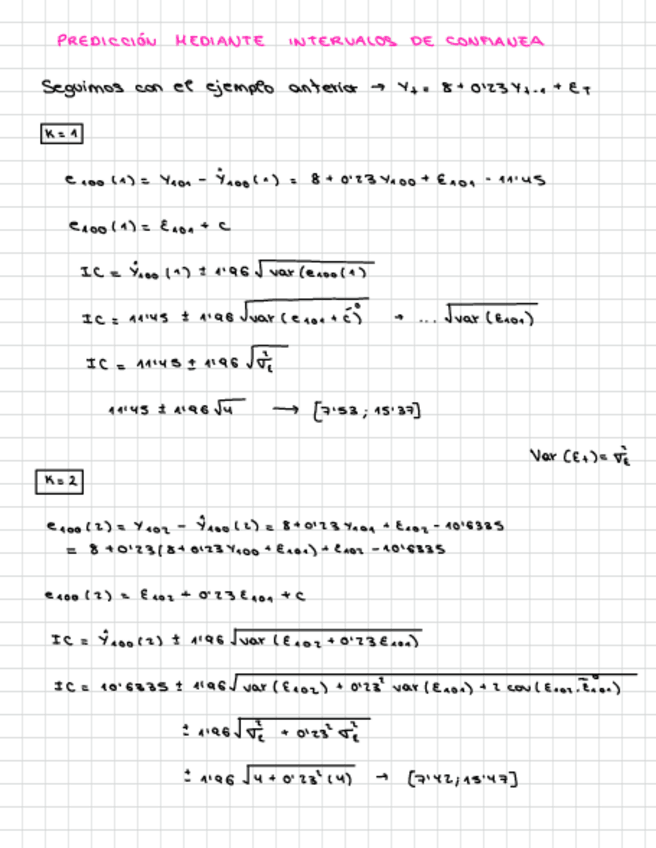 PREDICCIÓN MEDIANTE INTERVALOS DE CONFIANZA
Seguimos con el ejemplo anterior → Y_t = 8 + 0'23 Y_{t-1} + ε_T
K = 1
e₁₀₀(1) = Y₁₀₁ - Ŷ₁₀₀(1) = 8 + 0'23 Y₁₀₀ + ε₁₀₁ - 11'45
e₁₀₀(1) = ε₁₀₁ + c
IC = Ŷ₁₀₀(1) ± 1'96 √var(e₁₀₀(1)
IC = 11'45 ± 1'96 √var(ε₁₀₁ + c)⁰ → ... √var(ε₁₀₁)
IC = 11'45 ± 1'96 √σ²_ε
11'45 ± 1'96 √4 → [7'53 ; 15'37]
Var(ε_t) = σ²_ε
K = 2
e₁₀₀(2) = Y₁₀₂ - Ŷ₁₀₀(2) = 8 + 0'23 Y₁₀₁ + ε₁₀₂ - 10'6335
= 8 + 0'23(8 + 0'23 Y₁₀₀ + ε₁₀₁) + ε₁₀₂ - 10'6335
e₁₀₀(2) = ε₁₀₂ + 0'23 ε₁₀₁ + c
IC = Ŷ₁₀₀(2) ± 1'96 √var(ε₁₀₂ + 0'23 ε₁₀₁)
IC = 10'6335 ± 1'96 √var(ε₁₀₂) + 0'23² var(ε₁₀₁) + 2 cov(ε₁₀₂, ε₁₀₁)⁰
± 1'96 √σ²_ε + 0'23² σ²_ε
± 1'96 √4 + 0'23² (4) → [7'42; 15'47]